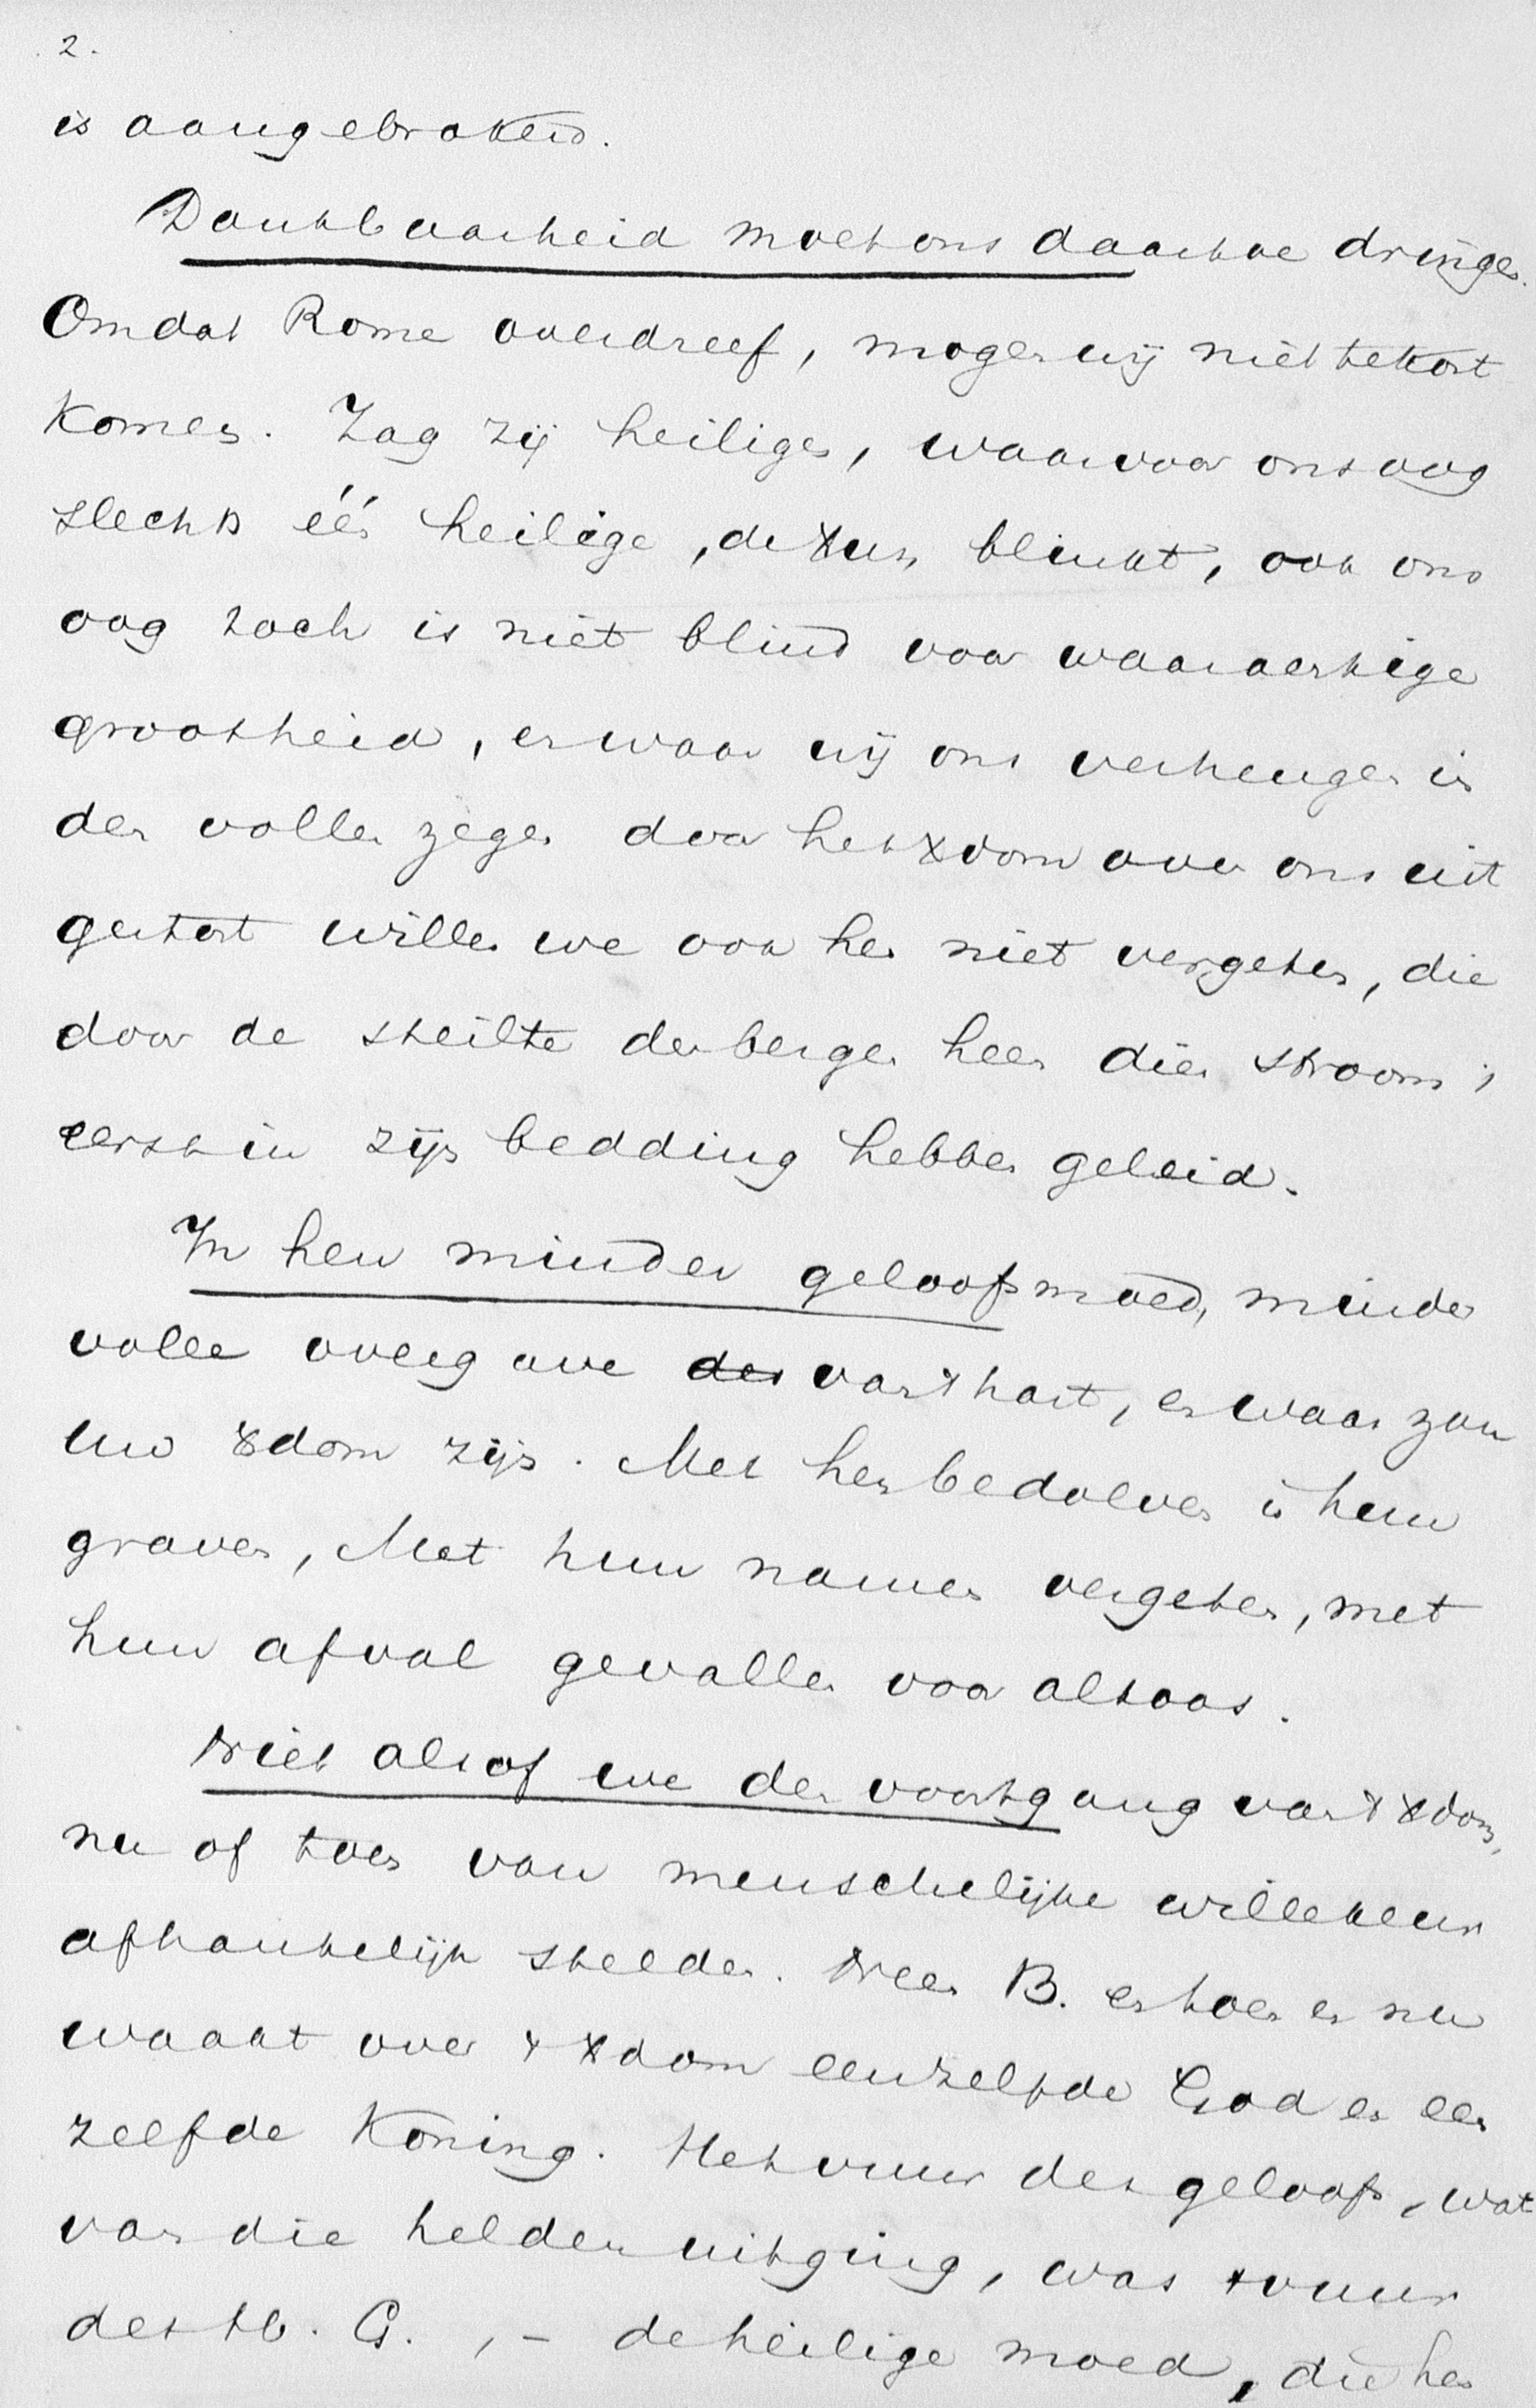 2.
is aangebroken.
Dankbaarheid moet ons daartoe dringen.
Omdat Rome overdreef, mogen wij niet tekort
komen. Zag zij heiligen, waarvoor ons oog
slechts één heilige, de Xus, blinkt, ook ons
oog toch is niet blind voor waarachtige
grootheid, en waar wij ons verheugen in
den vollen zegen door het Xdom over ons uit
gestort willen we ook hen niet vergeten, die
door de steilte der bergen heen dien stroom
eerst in zijn bedding hebben geleid.
In hen minder geloofsmoed, minder
volle overgave des van 't hart, en waar zou
uw Xdom zijn. Met hen bedolven in hun
graven, Met hun namen vergeten, met
hun afval gevallen voor altoos.
Niet alsof we den voortgang van 't Xdom,
nu of toen van menschelijke willekeur
afhankelijk stelden. Neen B. en toen en nu
waakt over 't Xdom eenzelfde God en een
zelfde Koning. Het vuur des geloofs, wat
van die helden uitging, was 't vuur
des Hl. G., – de heilige moed, die hen